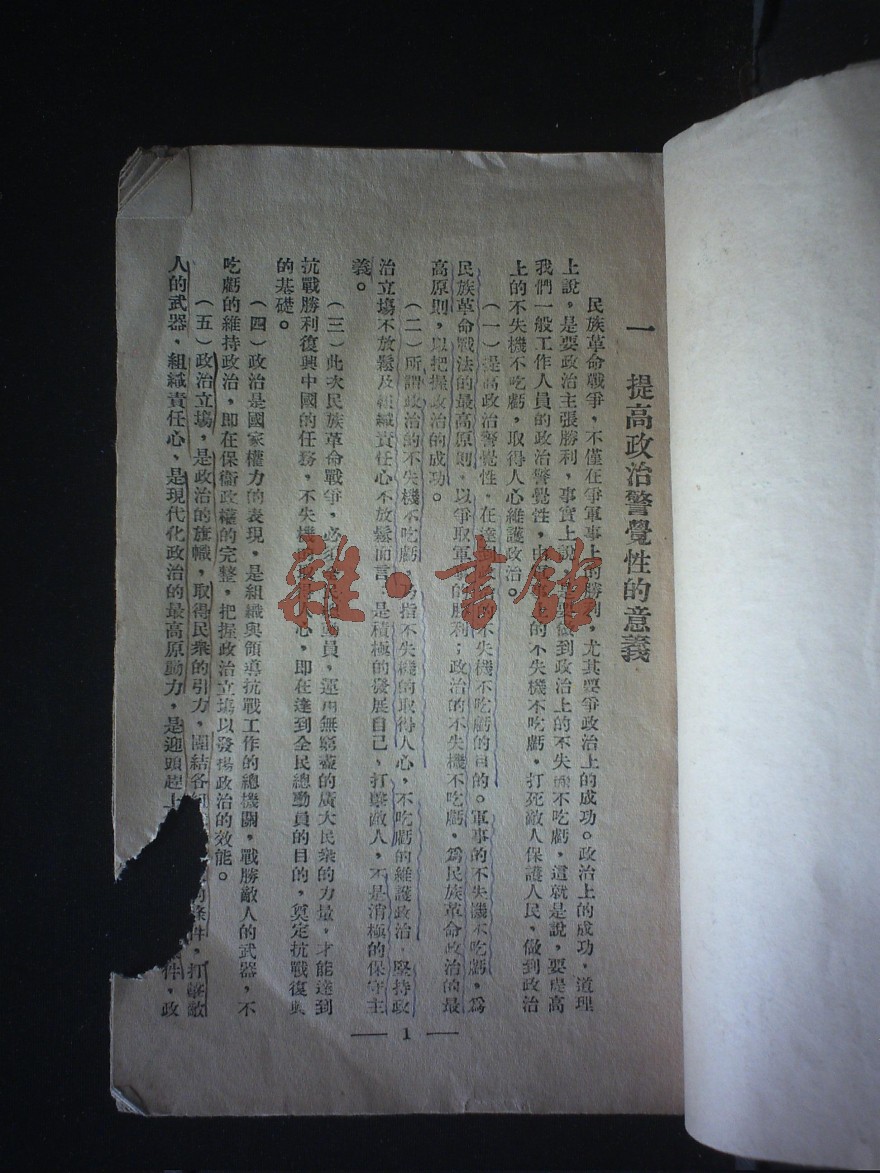 一　提高政治警覺性的意義
民族革命戰爭，不僅在爭軍事上的勝利，尤其要爭政治上的成功。政治上的成功，道理
上說，是要政治主張勝利，事實上說，是要做到政治上的不失機不吃虧，這就是說，要提高
我們一般工作人員的政治警覺性，由 的不失機不吃虧，打死敵人保護人民，做到政治
上的不失機不吃虧，取得人心維護政治。
（一）提高政治警覺性，在達 的不失機不吃虧的目的。軍事的不失機不吃虧，爲
民族革命戰法的最高原則，以爭取軍事的勝利；政治的不失機不吃虧，爲民族革命政治的最
高原則，以把握政治的成功。
（二）所謂政治的不失機不吃虧，乃指不失機的取得人心，不吃虧的維護政治，堅持政
治立場不放鬆及組織責任心不放鬆而言。是積極的發展自己，打擊敵人，不是消極的保守主
義。
（三）此次民族革命戰爭，必須 動員，運用無窮盡的廣大民衆的力量，才能達到
抗戰勝利復興中國的任務，不失機 心，即在達到全民總動員的目的，奠定抗戰復興
的基礎。
（四）政治是國家權力的表現，是組織與領導抗戰工作的總機關，戰勝敵人的武器，不
吃虧的維持政治，即在保衛政權的完整，把握政治立場以發揚政治的效能。
（五）政治立場，是政治的旗幟，取得民衆的引力，團結各 條件，打擊敵
人的武器，組織責任心，是現代化政治的最高原動力，是迎頭趕上 件，政
— 1 —
雜·書館